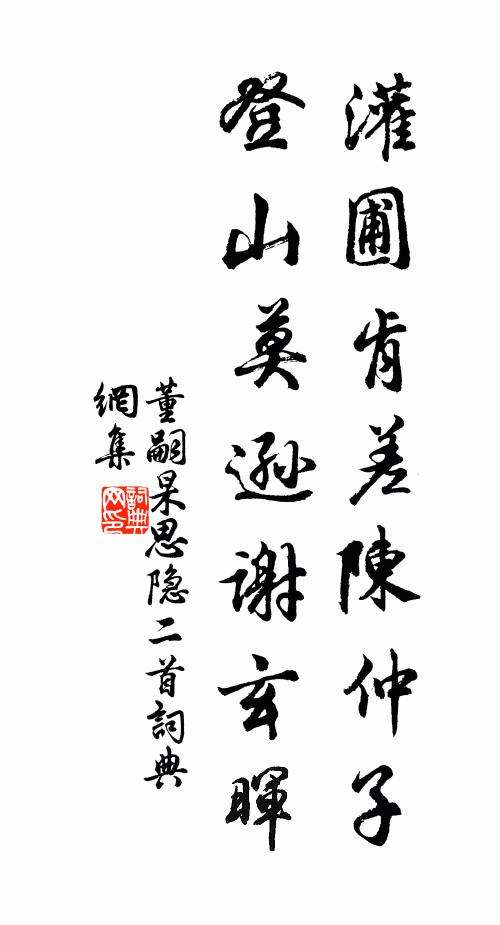 灌圃肯差陳仲子
登山莫遜谢玄暉
董嗣杲思隐二首詞典
網集
詞典
网印